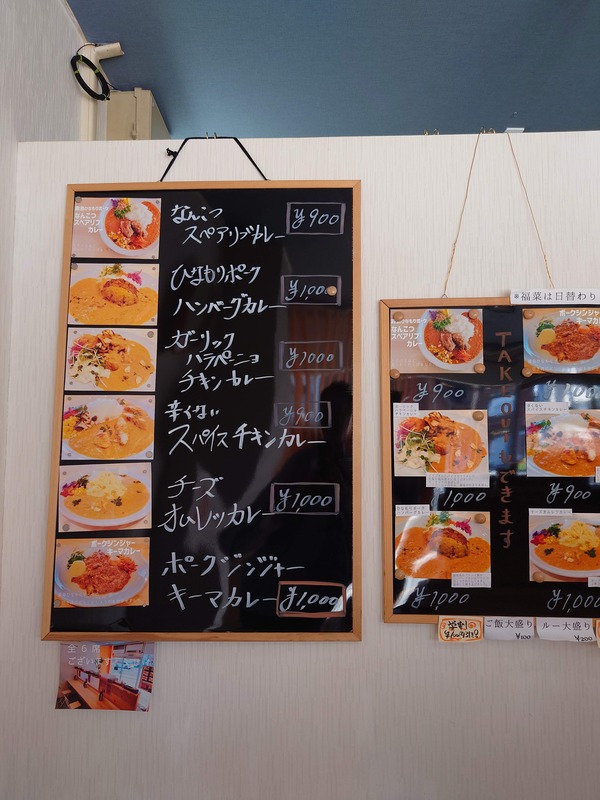 なんこつ
スペアリブカレー ¥900
ひなもりポーク
ハンバーグカレー ¥1,000
ガーリック
ハラペーニョ
チキンカレー ¥1000
辛くない
スパイスチキンカレー ¥900
チーズ
オムレツカレー ¥1,000
ポークジンジャー
キーマカレー ¥1,000
なんこつ
スペアリブ
カレー
ポークジンジャー
キーマカレー
全6席
ございます
※福菜は日替わり
TAKEOUTもできます
なんこつ
スペアリブ
カレー
ポークジンジャー
キーマカレー
¥900
¥1,000
¥900
¥1000
¥1,000
学割
ご飯大盛り
¥100
ルー大盛り
¥200